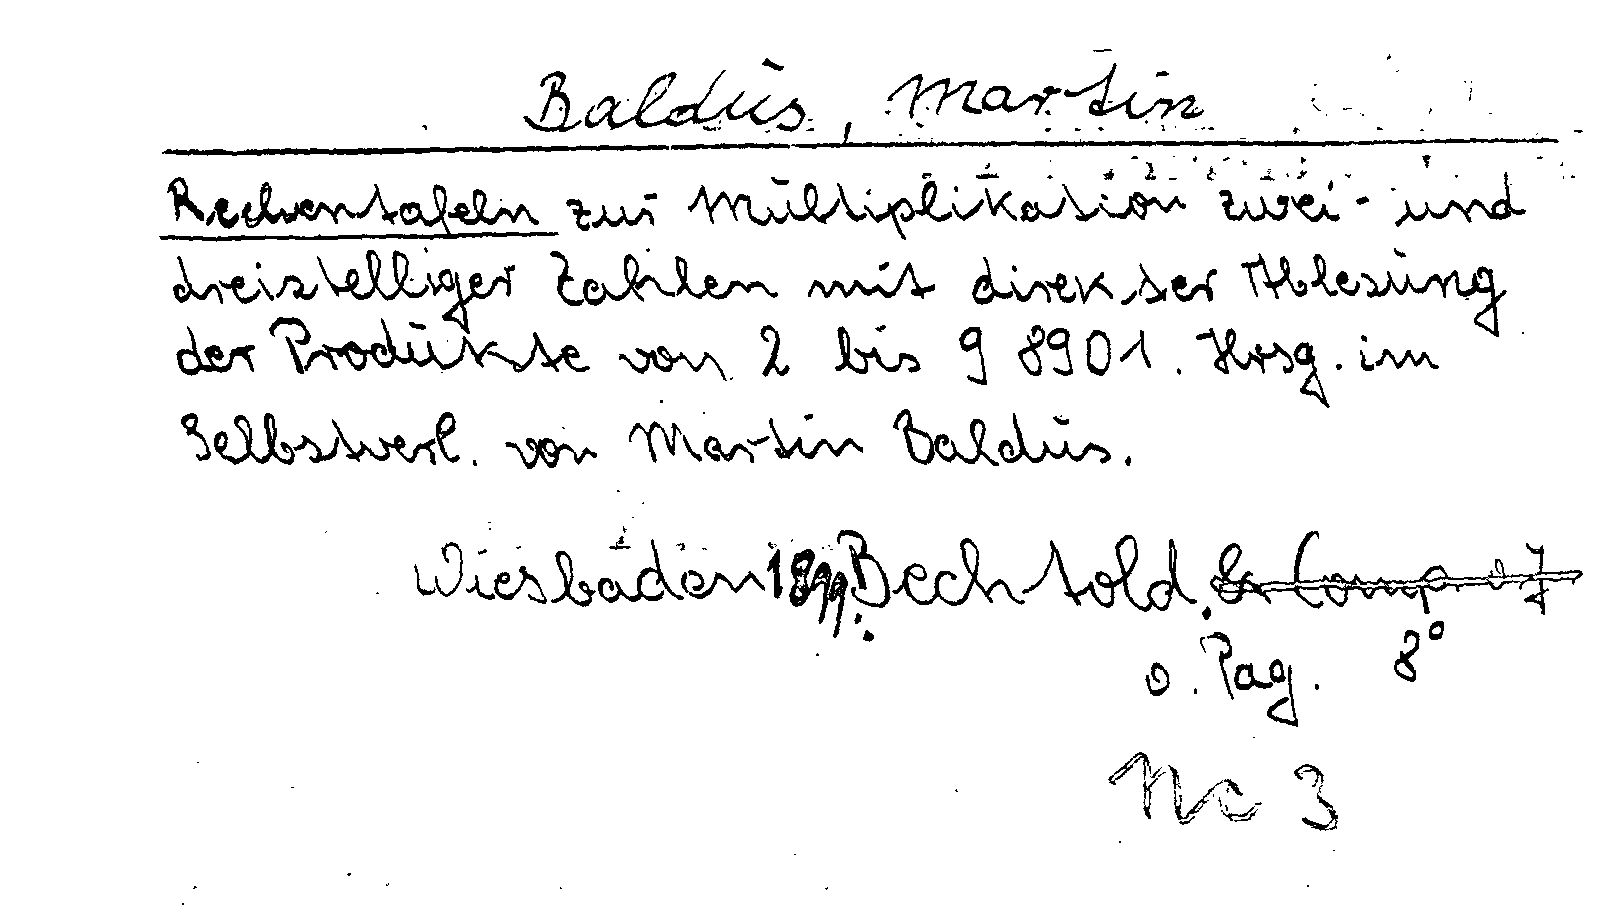 Baldus, Martin
Rechentafeln zur Multiplikation zwei- und
dreistelliger Zahlen mit direkter Ablesung
der Produkte von 2 bis 98901. Hrsg. im
Selbstverl. von Martin Baldus.
Wiesbaden 1899: Bechtold. & Comp. o. J.
o. Pag. 8°
Nc 3